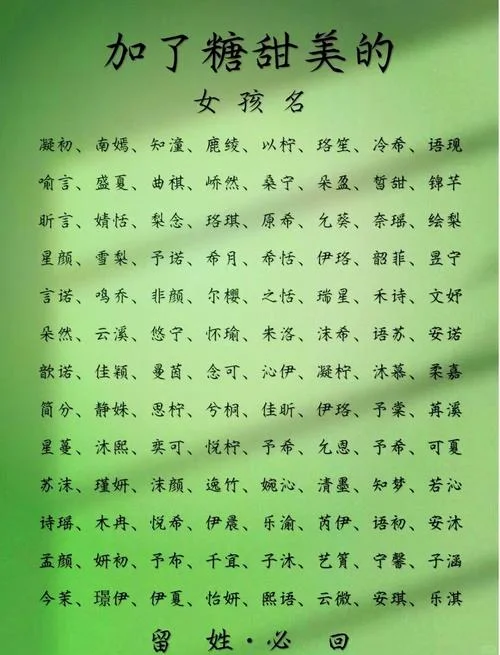 加了糖甜美的
女孩名
凝初、南嫣、知潼、鹿绫、以柠、珞笙、冷希、语现
喻言、盛夏、曲祺、峤然、桑宁、朵盈、皙甜、锦芊
昕言、婧恬、梨念、珞琪、原希、允葵、奈瑶、绘梨
星颜、雪梨、予诺、希月、希恬、伊珞、韶菲、昱宁
言诺、鸣乔、非颜、尔樱、之恬、瑞星、禾诗、文妤
朵然、云溪、悠宁、怀瑜、朱洛、沫希、语苏、安诺
歆诺、佳颖、曼茵、念可、沁伊、凝柠、沐慕、柔嘉
简分、静姝、思柠、兮桐、佳昕、伊珞、予棠、苒溪
星蔓、沐熙、奕可、悦柠、予希、允恩、予希、可夏
苏沫、瑾妍、沫颜、逸竹、婉沁、清墨、知梦、若沁
诗瑶、木冉、悦希、伊晨、乐渝、芮伊、语初、安沐
孟颜、妍初、予布、千宜、子沐、艺霄、宁馨、子涵
今茉、璟伊、伊夏、怡妍、熙语、云微、安琪、乐淇
留姓·必回